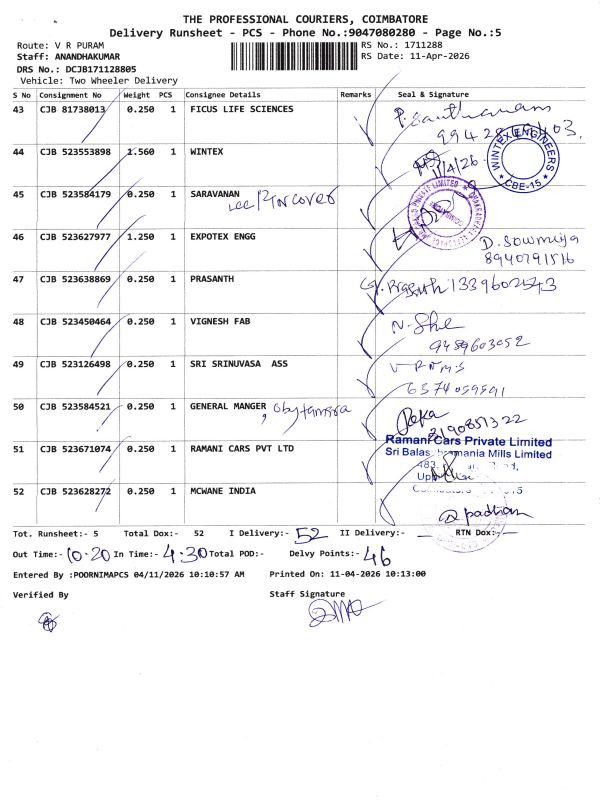 THE PROFESSIONAL COURIERS, COIMBATORE
Delivery Runsheet - PCS - Phone No.:9047080280 - Page No.:5
Route: V R PURAM RS No.: 1711288
Staff: ANANDHAKUMAR RS Date: 11-Apr-2026
DRS No.: DCJB171128805
Vehicle: Two Wheeler Delivery
S No Consignment No Weight PCS Consignee Details Remarks Seal & Signature
43 CJB 81738013 0.250 1 FICUS LIFE SCIENCES
44 CJB 523553898 1.560 1 WINTEX 11/4/26
WINTEX ENGINEERS
* CBE-15 *
45 CJB 523584179 0.250 1 SARAVANAN
46 CJB 523627977 1.250 1 EXPOTEX ENGG D. Sowmiya
8940791516
47 CJB 523638869 0.250 1 PRASANTH
48 CJB 523450464 0.250 1 VIGNESH FAB
9489603052
49 CJB 523126498 0.250 1 SRI SRINUVASA ASS
6374059591
50 CJB 523584521 0.250 1 GENERAL MANGER
51 CJB 523671074 0.250 1 RAMANI CARS PVT LTD
Ramani Cars Private Limited
Mills Limited
52 CJB 523628272 0.250 1 MCWANE INDIA
Tot. Runsheet:- 5 Total Dox:- 52 I Delivery:- 52 II Delivery:- RTN Dox:-
Out Time:- 10.20 In Time:- 4.30 Total POD:- Delvy Points:- 46
Entered By :POORNIMAPCS 04/11/2026 10:10:57 AM Printed On: 11-04-2026 10:13:00
Verified By Staff Signature